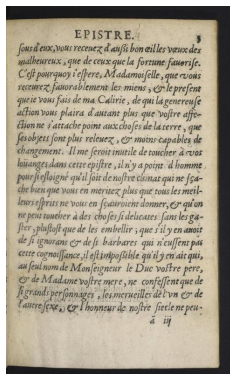 EPISTRE. 3
sous d'eux, vous receuez d'aussi bon œil les vœux des
malheureux, que de ceux que la fortune fauorise.
C'est pourquoy i'espere, Madamoiselle, que vous
receurez fauorablement les miens, & le present
que ie vous fais de ma Calirie, de qui la genereuse
action vous plaira d'autant plus que vostre affe-
ction ne s'attache point aux choses de la terre, que
ses objets sont plus releuez, & moins capables de
changement. Il me seroit inutile de toucher à vos
loüanges dans cette epistre, il n'y a point d'homme
pour si esloigné qu'il soit de nostre climat qui ne sça-
che bien que vous en meritez plus que tous les meil-
leurs esprits ne vous en sçauroient donner, & qu'on
ne peut toucher à des choses si delicates sans les ga-
ster, plustost que de les embellir; que s'il y en auoit
de si ignorans & de si barbares qui n'eussent pas
cette cognoissance, il est impossible qu'il y en ait qui,
au seul nom de Monseigneur le Duc vostre pere,
& de Madame vostre mere, ne confessent que de
si grands personnages, les merueilles de l'vn & de
l'autre sexe, & l'honneur de nostre siecle ne peu-
á iij